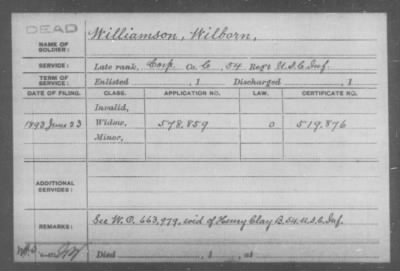 DEAD
NAME OF SOLDIER: Williamson, Wilborn,
SERVICE: Late rank, Corp Co. C, 54 Reg't U.S.C. Inf.
TERM OF SERVICE: Enlisted , 1 Discharged , 1
DATE OF FILING. CLASS. APPLICATION NO. LAW. CERTIFICATE NO.
Invalid,
1893 June 23 Widow, 578,859 O 519,876
Minor,
ADDITIONAL SERVICES:
REMARKS: See W.O. 663,979, wid of Henry Clay B. 54. U.S.C. Inf.
Died , 1 , at